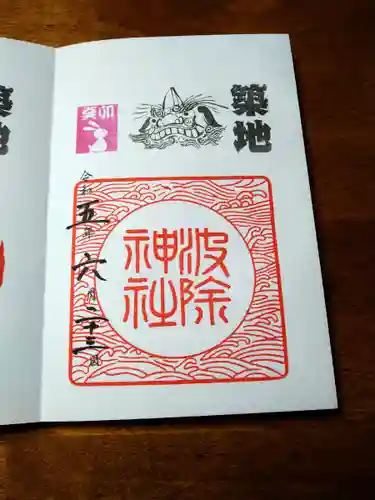 築地
癸卯
波除
神社
令和五年六月二十三日
築地